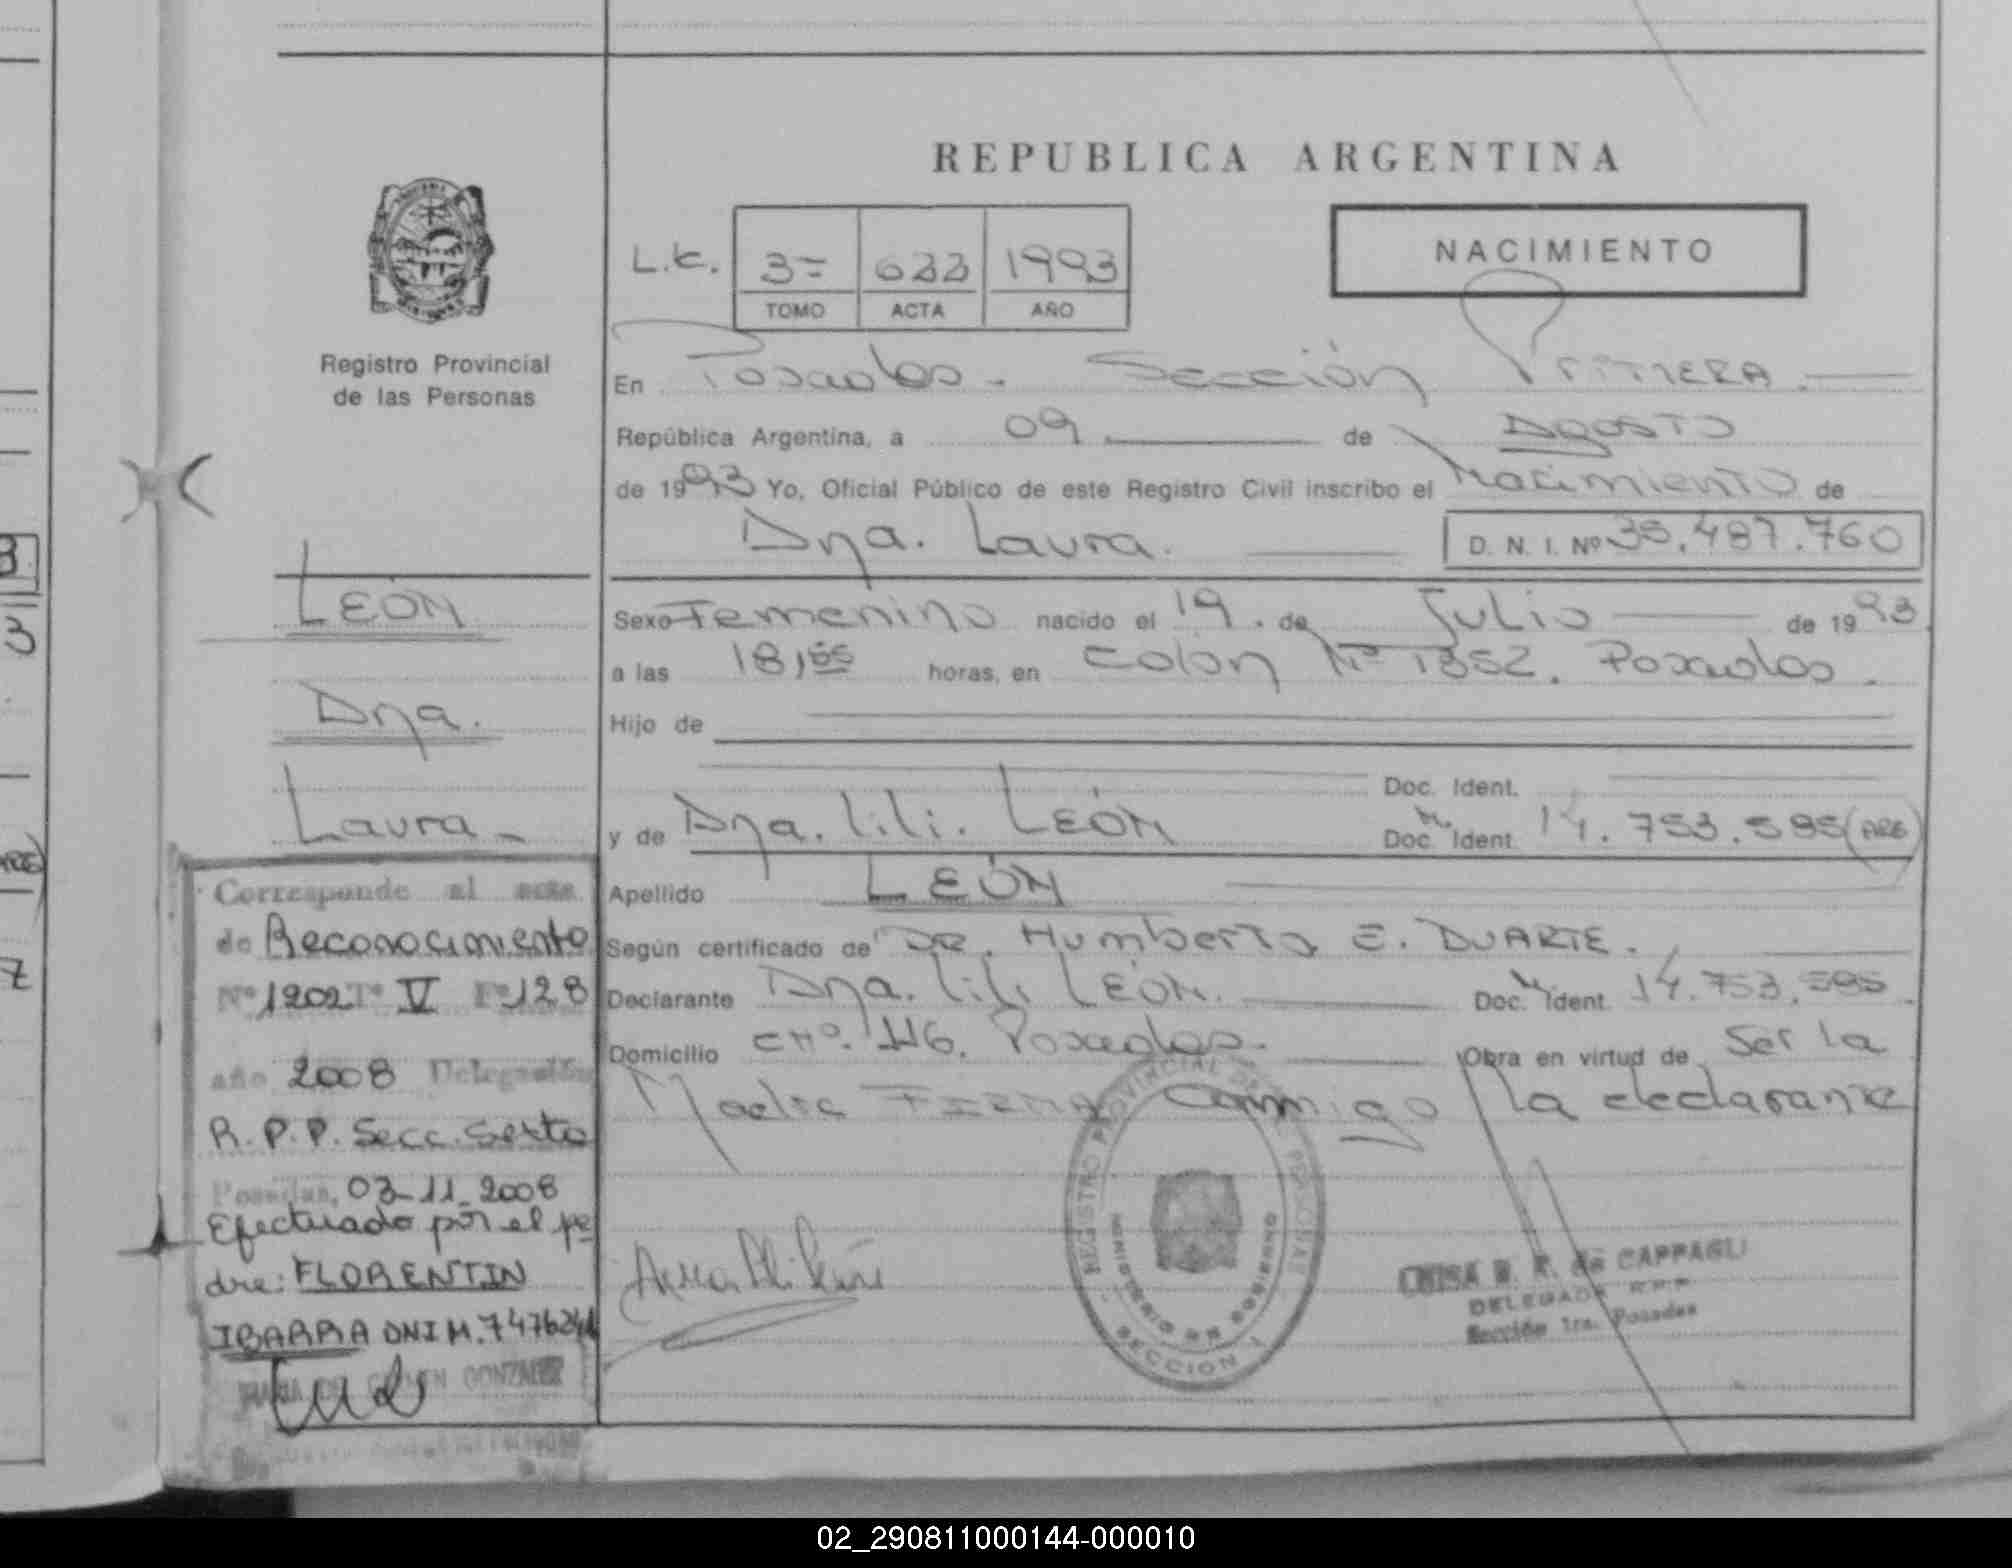 REPUBLICA ARGENTINA
NACIMIENTO
L.C. 3= 633 1993
TOMO ACTA AÑO
Registro Provincial
de las Personas
En Posadas. Sección PRIMERA.
República Argentina, a 09 de AGOSTO
de 1993 Yo, Oficial Público de este Registro Civil inscribo el Nacimiento de
Dña. Laura. D. N. I. Nº 35.487.760
LEÓN
Dña.
Laura
Sexo Femenino nacido el 19. de Julio de 1993
a las 18,55 horas, en Colón Nº 1852. Posadas.
Hijo de
Doc. Ident.
y de Dña. Lili. LEÓN Doc. Ident. 14.753.585 (ARG)
Apellido LEÓN
Según certificado de DR. Humberto E. DUARTE.
Declarante Dña. Lili LEÓN. Doc. Ident. 14.753.585
Domicilio CHº. 116. Posadas. Obra en virtud de Ser la
Madre FIRMA Conmigo la declarante
Corresponde al acta
de Reconocimiento
Nº 1202 Tº V Fº 128
año 2008 Delegación
R.P.P. Secc. Sexta
Posadas, 03-11-2008
Efectuado por el pa
dre: FLORENTIN
IBARRA DNI M. 7476241
MARIA DEL CARMEN GONZALEZ
REGISTRO PROVINCIAL DE LAS PERSONAS
MINISTERIO DE GOBIERNO
SECCION 1
de CAPPAGLI
DELEGADA R.P.P.
Sección 1ra. Posadas
02_290811000144-000010